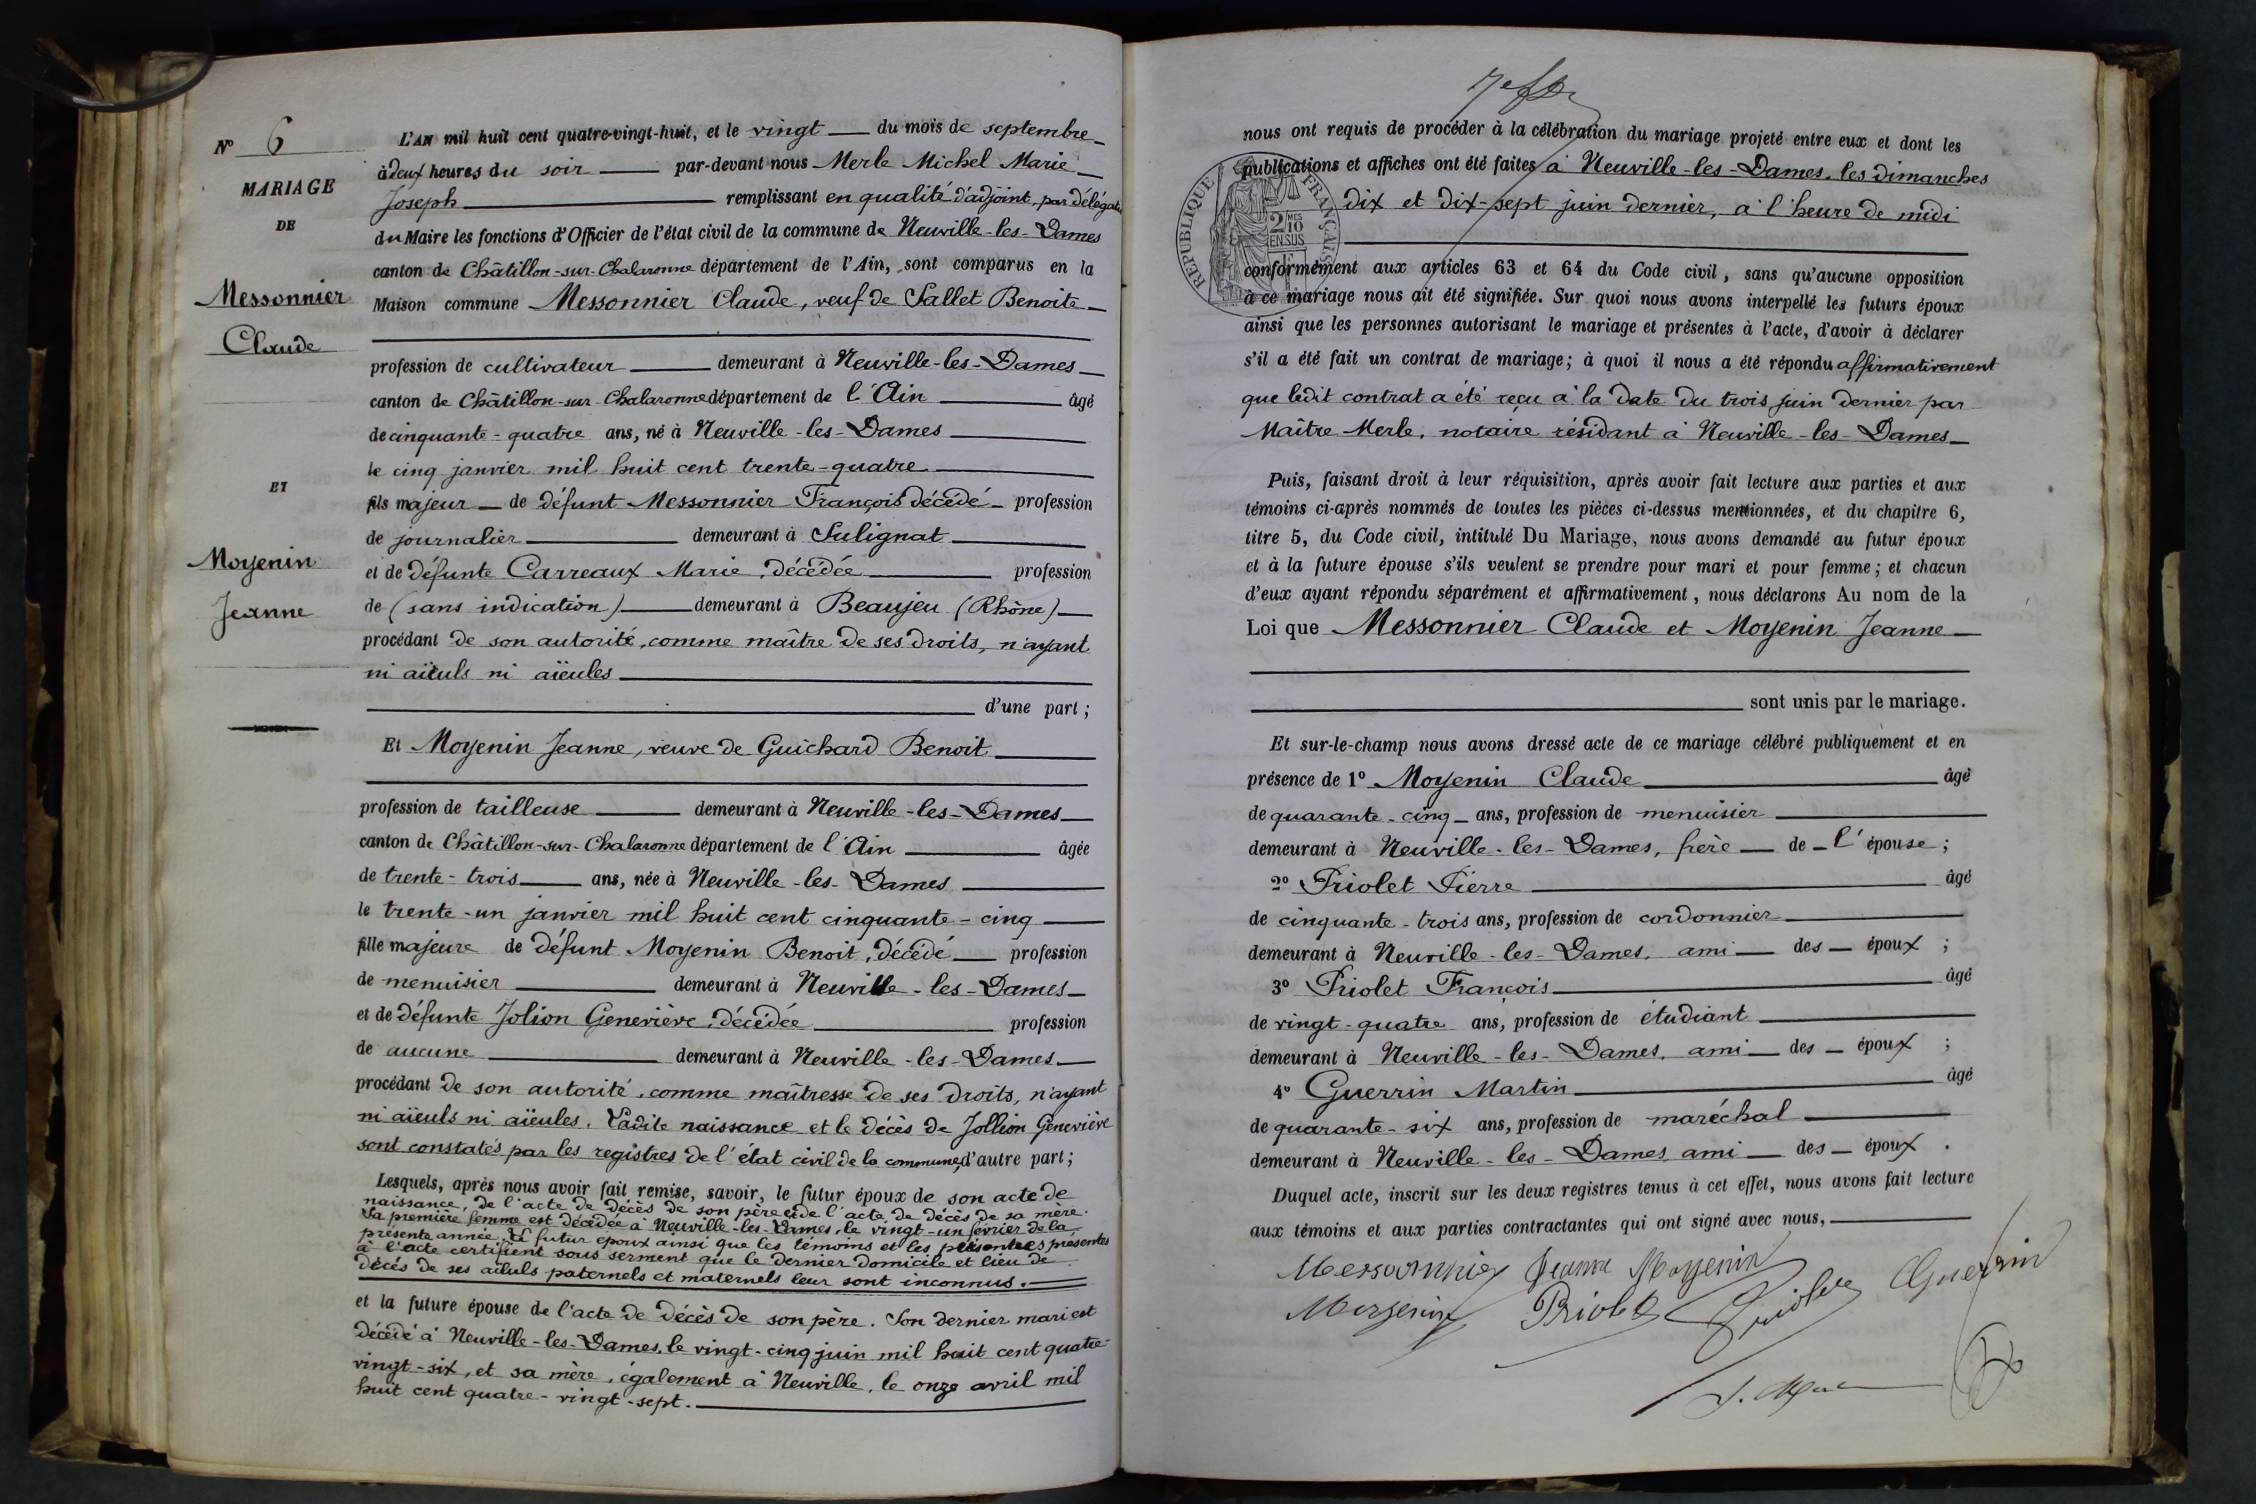 N° 6
MARIAGE
DE
Messonnier
Claude
ET
Moyenin
Jeanne
L'AN mil huit cent quatre-vingt-huit, et le vingt du mois de septembre
à deux heures du soir par-devant nous Merle Michel Marie
Joseph remplissant en qualité d'adjoint, par délégation
du Maire les fonctions d'Officier de l'état civil de la commune de Neuville-les-Dames
canton de Châtillon-sur-Chalaronne département de l'Ain, sont comparus en la
Maison commune Messonnier Claude, veuf de Sallet Benoite
profession de cultivateur demeurant à Neuville-les-Dames
canton de Châtillon-sur-Chalaronne département de l'Ain âgé
de cinquante-quatre ans, né à Neuville-les-Dames
le cinq janvier mil huit cent trente-quatre
fils majeur de défunt Messonnier François décédé profession
de journalier demeurant à Sulignat
et de défunte Carreaux Marie, décédée profession
de (sans indication) demeurant à Beaujeu (Rhône)
procédant de son autorité, comme maître de ses droits, n'ayant
ni aïeuls ni aïeules
d'une part;
Et Moyenin Jeanne, veuve de Guichard Benoit
profession de tailleuse demeurant à Neuville-les-Dames
canton de Châtillon-sur-Chalaronne département de l'Ain âgée
de trente-trois ans, née à Neuville-les-Dames
le trente-un janvier mil huit cent cinquante-cinq
fille majeure de défunt Moyenin Benoit, décédé profession
de menuisier demeurant à Neuville-les-Dames
et de défunte Jolion Geneviève, décédée profession
de aucune demeurant à Neuville-les-Dames
procédant de son autorité, comme maîtresse de ses droits, n'ayant
ni aïeuls ni aïeules. Ladite naissance et le décès de Jollion Geneviève
sont constatés par les registres de l'état civil de la commune, d'autre part;
Lesquels, après nous avoir fait remise, savoir, le futur époux de son acte de
naissance, de l'acte de décès de son père et de l'acte de décès de sa mère.
Sa première femme est décédée à Neuville-les-Dames, le vingt-un février de la
présente année. Le futur époux ainsi que les témoins et les présentes présentes
à l'acte certifient sous serment que le dernier domicile et lieu de
décès de ses aïeuls paternels et maternels leur sont inconnus.
et la future épouse de l'acte de décès de son père. Son dernier mari est
décédé à Neuville-les-Dames, le vingt-cinq juin mil huit cent quatre-
vingt-six, et sa mère, également à Neuville, le onze avril mil
huit cent quatre-vingt-sept.
nous ont requis de procéder à la célébration du mariage projeté entre eux et dont les
publications et affiches ont été faites à Neuville-les-Dames, les dimanches
dix et dix-sept juin dernier, à l'heure de midi
RÉPUBLIQUE FRANÇAISE
2 MES 10 EN SUS
conformément aux articles 63 et 64 du Code civil, sans qu'aucune opposition
à ce mariage nous ait été signifiée. Sur quoi nous avons interpellé les futurs époux
ainsi que les personnes autorisant le mariage et présentes à l'acte, d'avoir à déclarer
s'il a été fait un contrat de mariage; à quoi il nous a été répondu affirmativement
que ledit contrat a été reçu à la date du trois juin dernier par
Maître Merle, notaire résidant à Neuville-les-Dames
Puis, faisant droit à leur réquisition, après avoir fait lecture aux parties et aux
témoins ci-après nommés de toutes les pièces ci-dessus mentionnées, et du chapitre 6,
titre 5, du Code civil, intitulé Du Mariage, nous avons demandé au futur époux
et à la future épouse s'ils veulent se prendre pour mari et pour femme; et chacun
d'eux ayant répondu séparément et affirmativement, nous déclarons Au nom de la
Loi que Messonnier Claude et Moyenin Jeanne
sont unis par le mariage.
Et sur-le-champ nous avons dressé acte de ce mariage célébré publiquement et en
présence de 1° Moyenin Claude âgé
de quarante-cinq ans, profession de menuisier
demeurant à Neuville-les-Dames, frère de l'épouse;
2° Priolet Pierre âgé
de cinquante-trois ans, profession de cordonnier
demeurant à Neuville-les-Dames, ami des époux;
3° Priolet François âgé
de vingt-quatre ans, profession de étudiant
demeurant à Neuville-les-Dames, ami des époux;
4° Guerrin Martin âgé
de quarante-six ans, profession de maréchal
demeurant à Neuville-les-Dames, ami des époux.
Duquel acte, inscrit sur les deux registres tenus à cet effet, nous avons fait lecture
aux témoins et aux parties contractantes qui ont signé avec nous,
Messonnier Jeanne Moyenin Guerrin
Moyenin Priolet Priolet